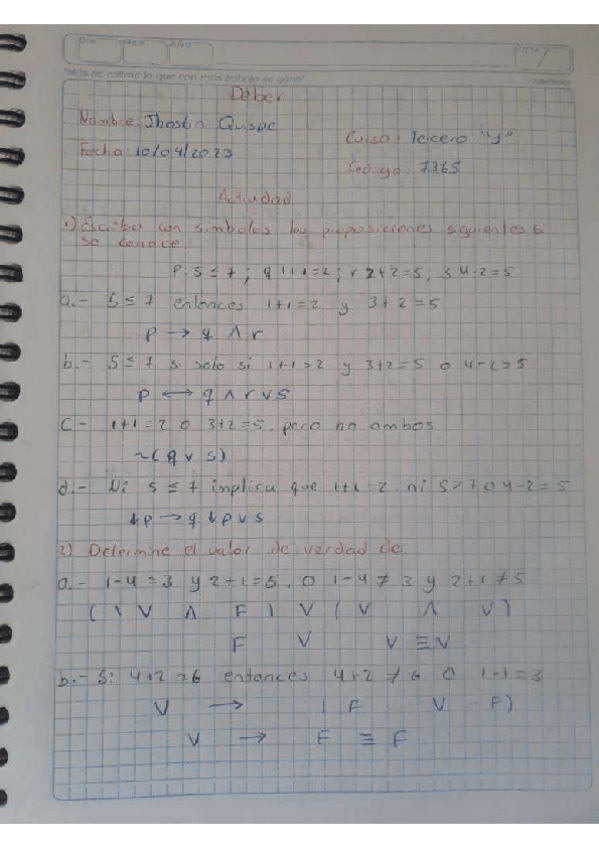 DIA MES AÑO NOTA
"Más se estima lo que con más trabajo se gana"
Deber
Nombre: Jhostin Quispe
Curso: Tercero "J"
Fecha: 10/04/2023
Código: 7365
Actividad
1) Escriba con símbolos las proposiciones siguientes si
se conoce
P: 5 ≤ 7 ; q 1+1=2 ; r 3+2=5; s 4-2=5
a.- 5 ≤ 7 entonces 1+1=2 y 3+2=5
p → q ∧ r
b.- 5 ≤ 7 si solo si 1+1=2 y 3+2=5 o 4-2=5
p ↔ q ∧ r ∨ s
c- 1+1=2 o 3+2=5, pero no ambos
~(q ∨ s)
d.- Ni 5 ≤ 7 implica que 1+1=2, ni 5>7 o 4-2=5
↓p → q ↓p ∨ s
2) Determine el valor de verdad de
a.- 1-4=3 y 2+1=5, o 1-4≠3 y 2+1≠5
V ∧ F ) V ( V ∧ V )
F V V ≡ V
b.- Si 4+2=6 entonces 4+2≠6 o 1-1=3
V → ( F V F)
V → F ≡ F